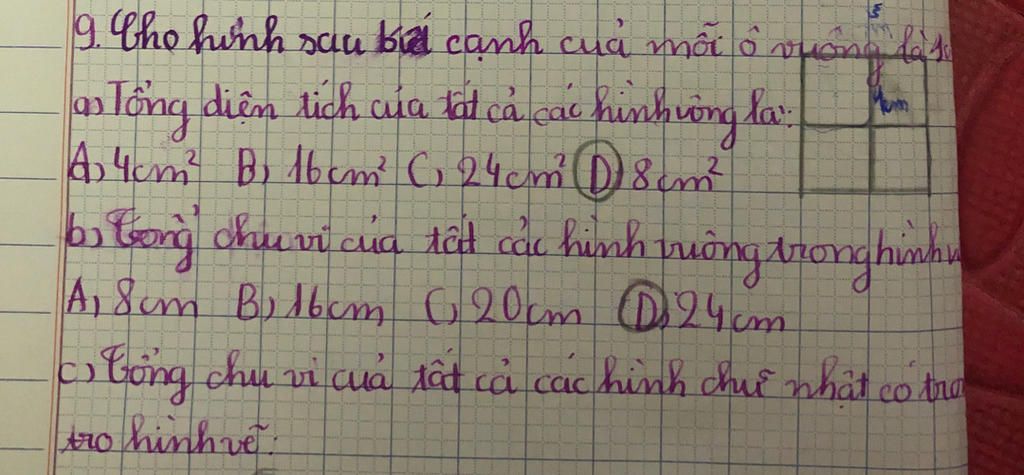 9. Cho hình sau biết cạnh của mỗi ô vuông là 1c
a) Tổng diện tích của tất cả các hình vuông là:
A) 4cm² B) 16cm² C) 24cm² D) 8cm²
1cm
b) Tổng chu vi của tất các hình vuông trong hình v
A) 8cm B) 16cm C) 20cm D) 24cm
c) Tổng chu vi của tất cả các hình chữ nhật có tro
tro hình vẽ: